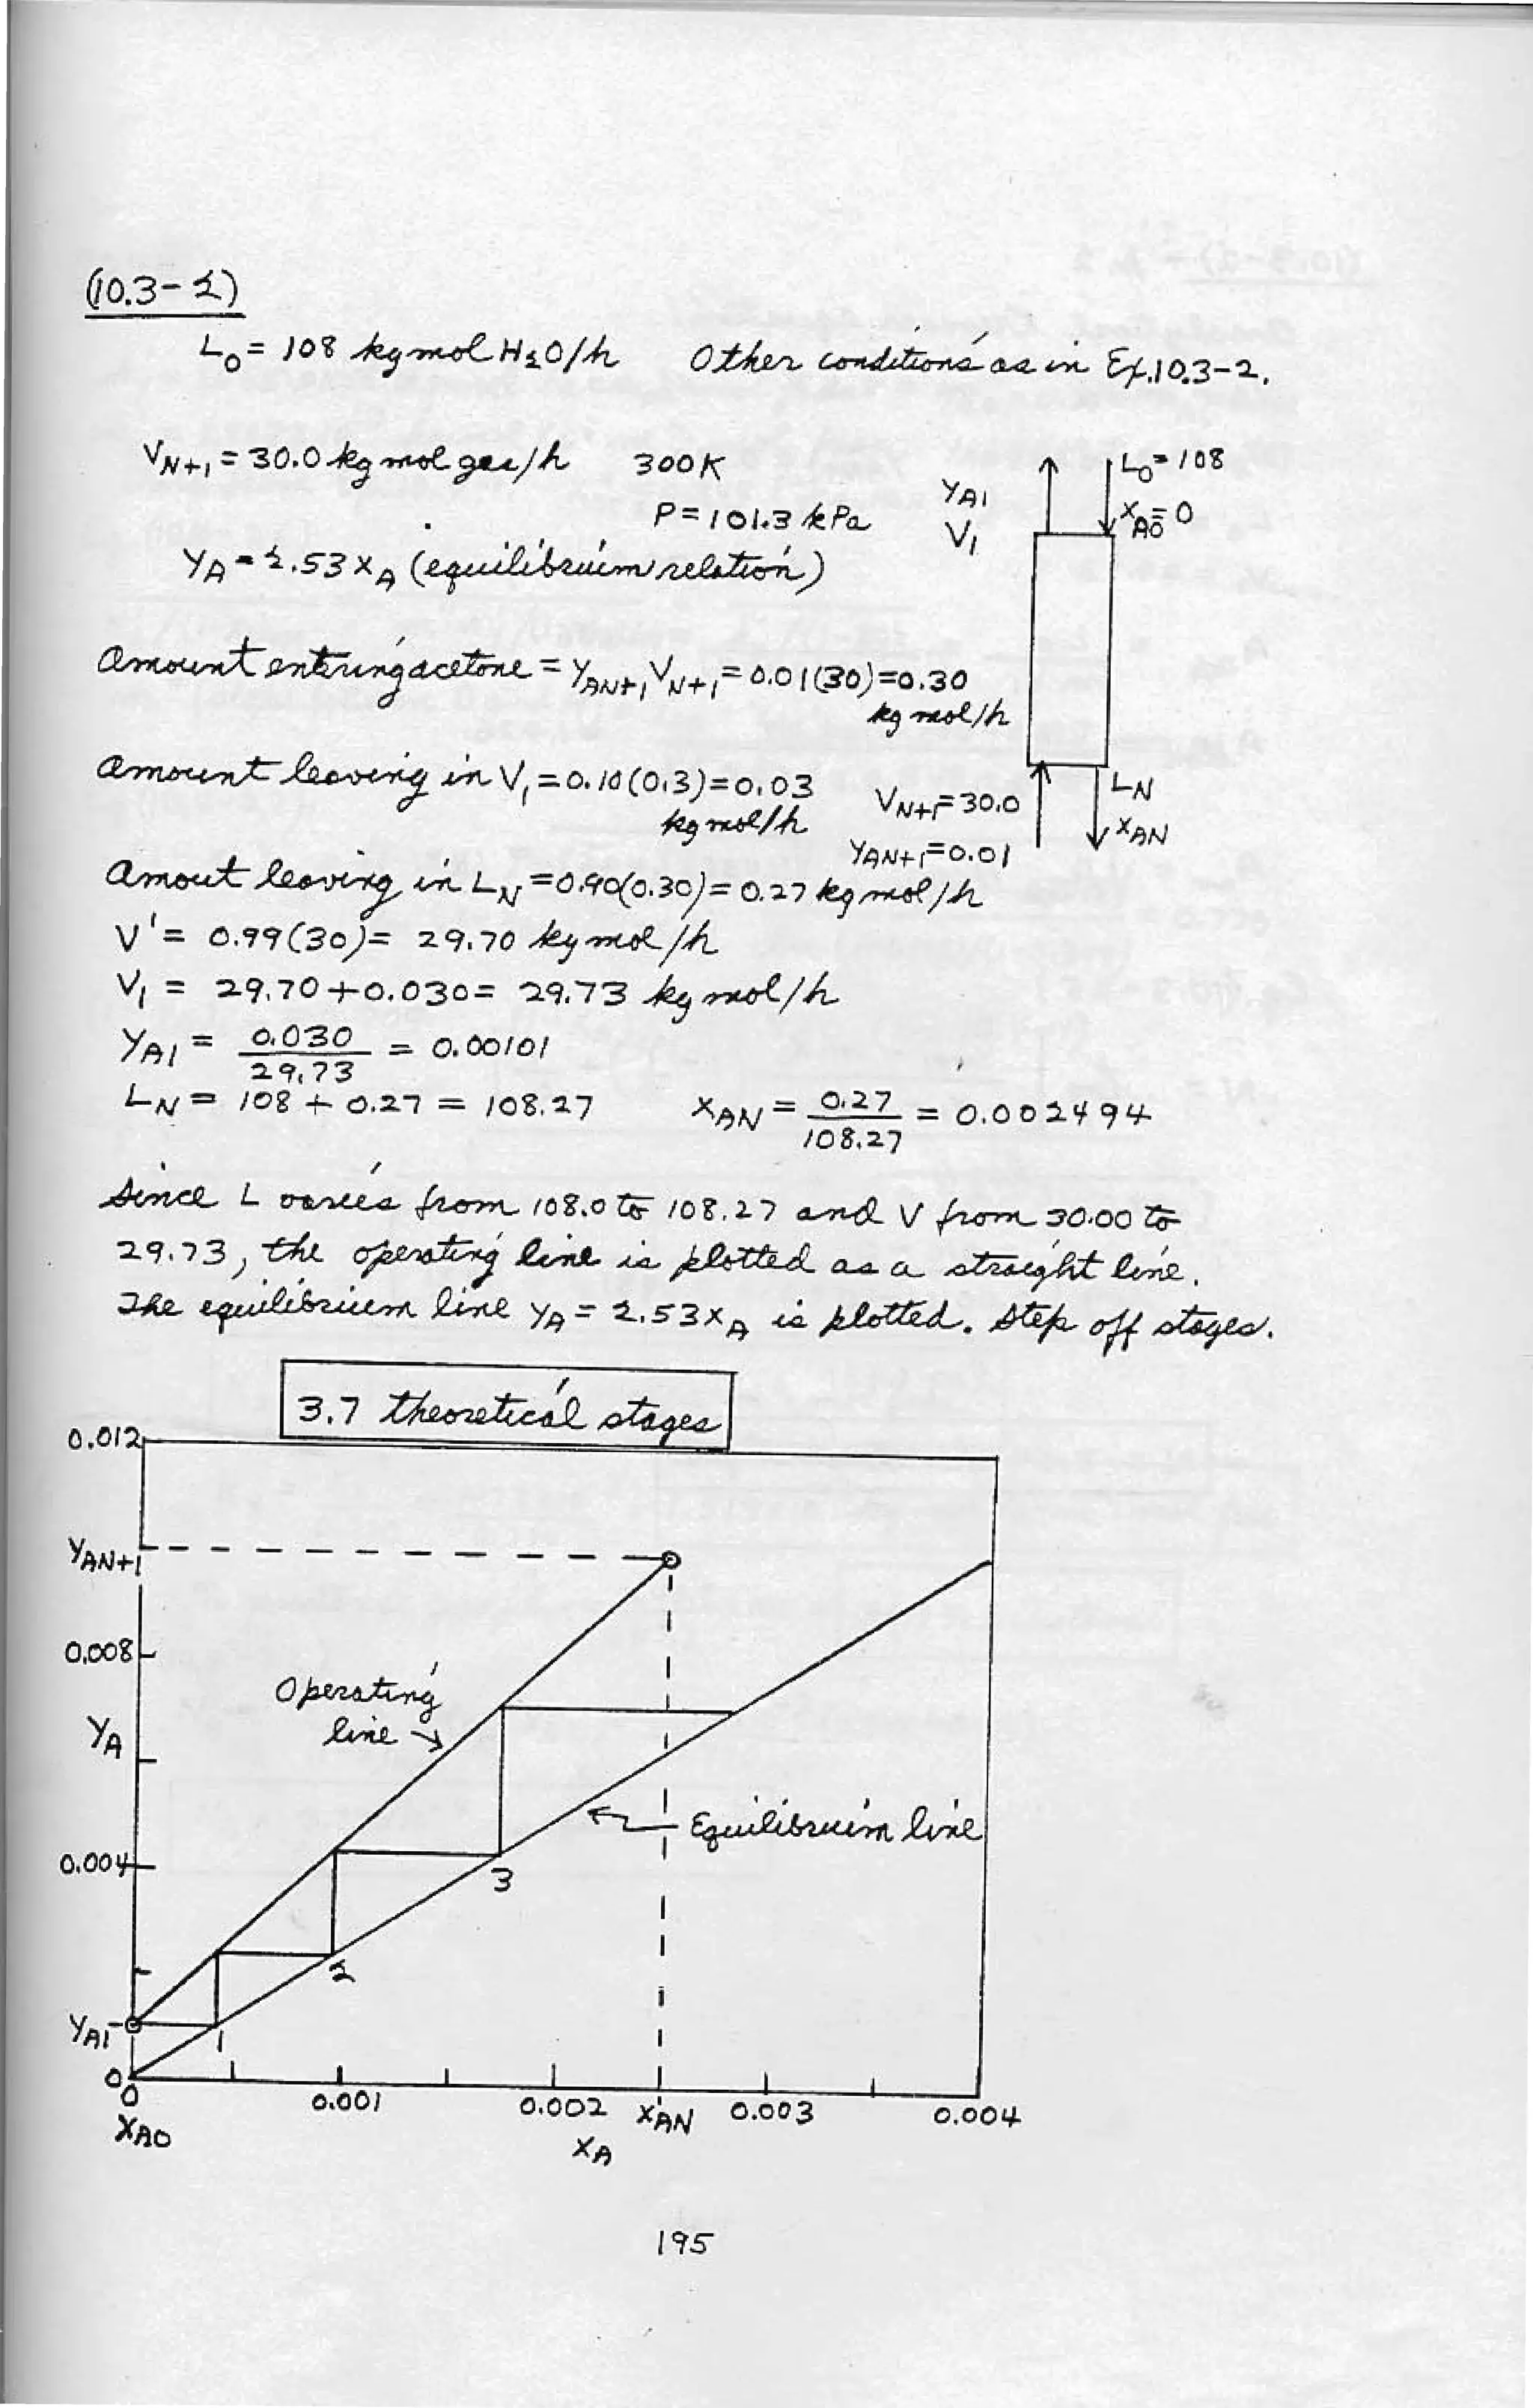 (10.3-2)
L0 = 108 kg mol H2O/h Other conditions as in Ex. 10.3-2.
VN+1 = 30.0 kg mol gas/h 300 K
P = 101.3 kPa
yA = 2.53 xA (equilibrium relation)
yA1
V1
L0 = 108
xA0 = 0
Amount entering acetone = yAN+1 VN+1 = 0.01(30) = 0.30
kg mol/h
Amount leaving in V1 = 0.10(0.3) = 0.03
kg mol/h
VN+1 = 30.0
yAN+1 = 0.01
LN
xAN
Amout leaving in LN = 0.90(0.30) = 0.27 kg mol/h
V' = 0.99(30) = 29.70 kg mol/h
V1 = 29.70 + 0.030 = 29.73 kg mol/h
yA1 = 0.030/29.73 = 0.00101
LN = 108 + 0.27 = 108.27 xAN = 0.27/108.27 = 0.002494
Since L varies from 108.0 to 108.27 and V from 30.00 to
29.73, the operating line is plotted as a straight line.
The equilibrium line yA = 2.53xA is plotted. Step off stages.
3.7 theoretical stages
0.012
yAN+1
0.008
Operating
line
yA
Equilibrium line
0.004
3
2
yA1
1
0
0
0.001
0.002
xAN
0.003
0.004
xA0
xA
195